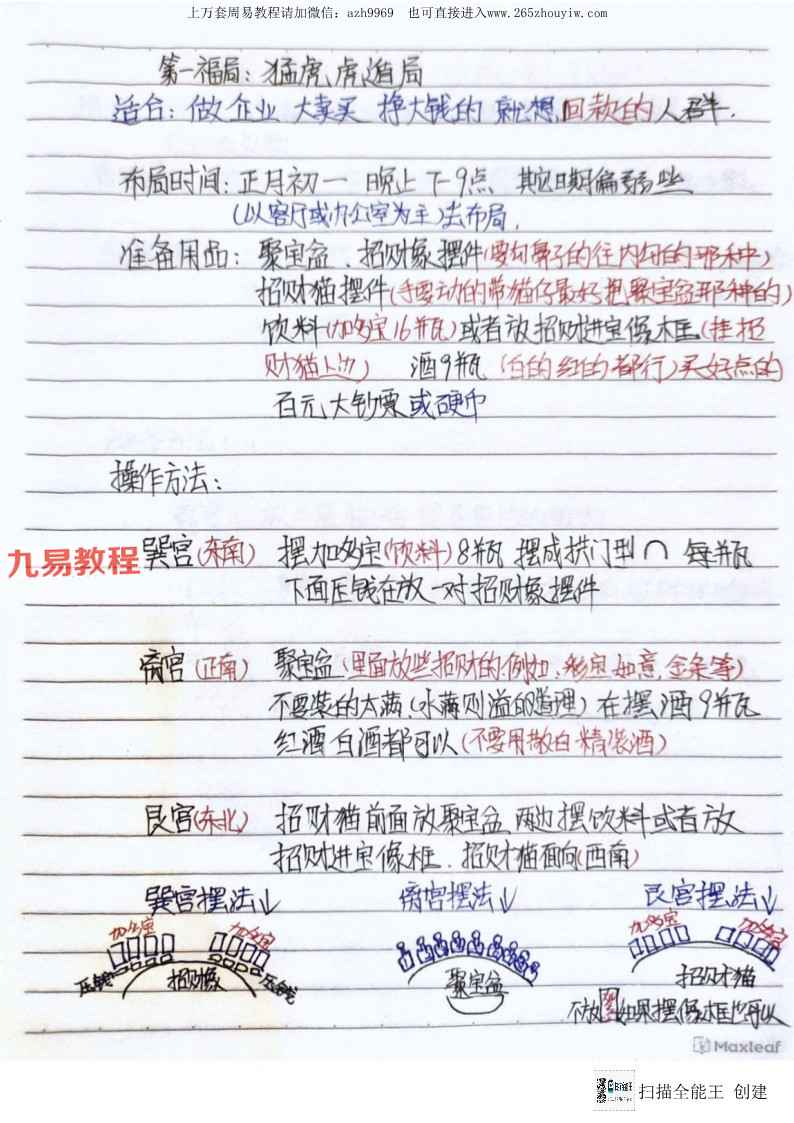 上万套周易教程请加微信：azh9969 也可直接进入www.265zhouyiw.com
第一福局：猛虎、虎遁局
适合：做企业 大卖买 挣大钱的 就想回款的人群.
布局时间：正月初一 晚上7-9点 其它日期偏弱些
(以客厅或办公室为主)去布局.
准备用品：聚宝盆、招财象摆件(要勾鼻子的往内勾的那种)
招财猫摆件(手要动的带猫仔最好抱聚宝盆那种的)
饮料(加多宝16瓶)或者放招财进宝像木框(挂招
财猫上边) 酒9瓶 (白的红的都行)买好点的
百元大钞票或硬币
操作方法：
九易教程
巽宫(东南) 摆加多宝(饮料)8瓶 摆成拱门型∩ 每瓶
下面压钱在放一对招财象摆件
离宫(正南) 聚宝盆(里面放些招财的.例如.彩宝如意.金条等)
不要装的太满.(水满则溢的道理)在摆酒9瓶
红酒白酒都可以(不要用散白精装酒)
艮宫(东北) 招财猫前面放聚宝盆 两边摆饮料或者放
招财进宝像框. 招财猫面向(西南)
巽宫摆法↓ 离宫摆法↓ 艮宫摆法↓
加多宝 加多宝 加多宝 加多宝
压钱 招财象 压钱 聚宝盆 招财猫
不放 如果摆像木框也可以
Maxleaf
扫描全能王 创建